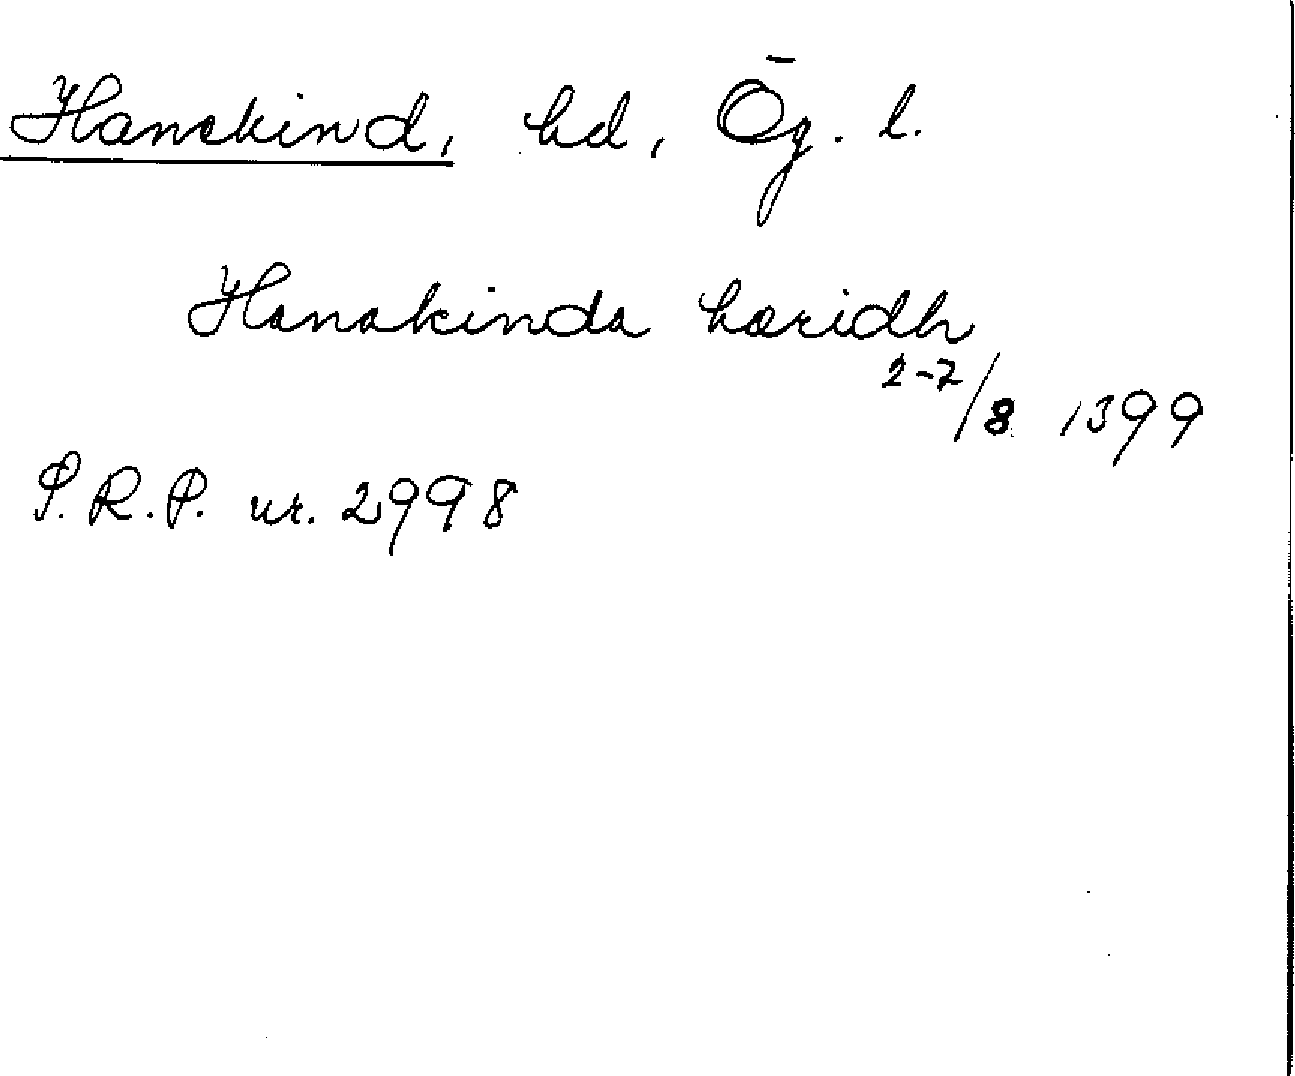 Hanekind, hd, Ög. l.
Hanakinda hæridh
2-7/8 1399
P.R.P. nr. 2998